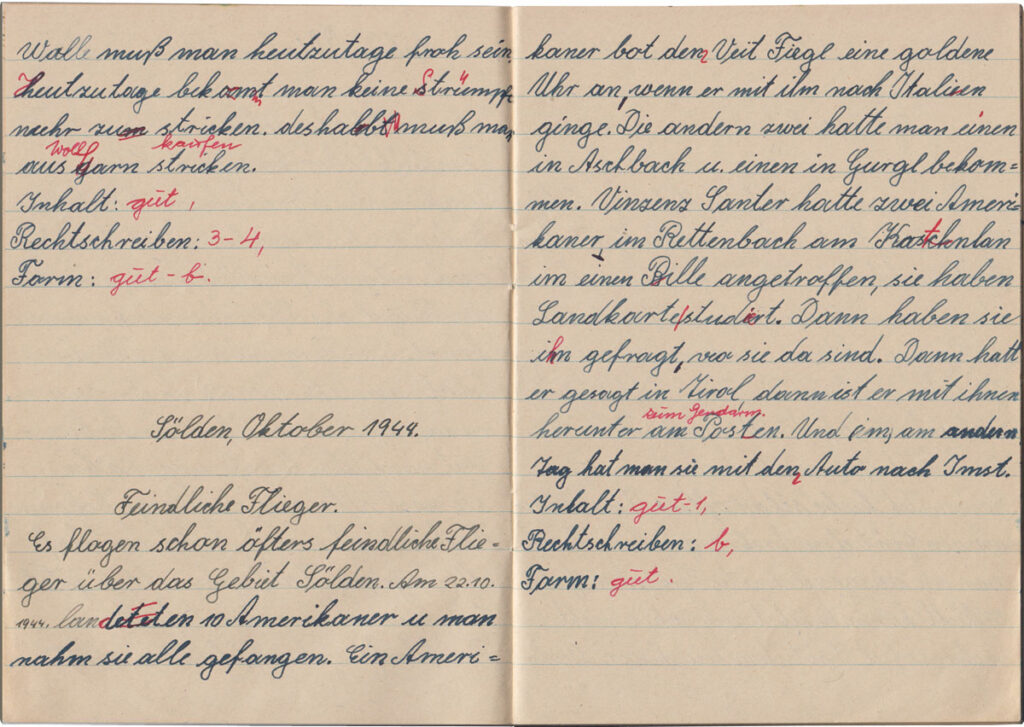 Wolle muß man heutzutage froh sein,
Heutzutage bekommt man keine Strümpfe
mehr zum stricken. deshalb muß man
Woll kaufen
aus garn stricken.
Inhalt: gut,
Rechtschreiben: 3-4,
Form: gut - b.
Sölden, Oktober 1944.
Feindliche Flieger.
Es flogen schon öfters feindliche Flie-
ger über das Gebiet Sölden. Am 22.10.
1944. landeten 10 Amerikaner u man
nahm sie alle gefangen. Ein Ameri=
kaner bot den Veit Fiegl eine goldene
Uhr an, wenn er mit ilm nach Italien
ginge. Die andern zwei hatte man einen
in Aschbach u. einen in Gurgl bekom=
men. Vinzenz Santer hatte zwei Ameri=
kaner, im Rettenbach am
im einen Bille angetroffen, sie haben
Landkarte studiert. Dann haben sie
ihn gefragt, wo sie da sind. Dann hatt
er gesagt in Tirol, dann ist er mit ihnen
zum Gendarm.
herunter am Posten. Und am andern
Tag hat man sie mit den Auto nach Imst.
Inhalt: gut-1,
Rechtschreiben: b,
Form: gut.